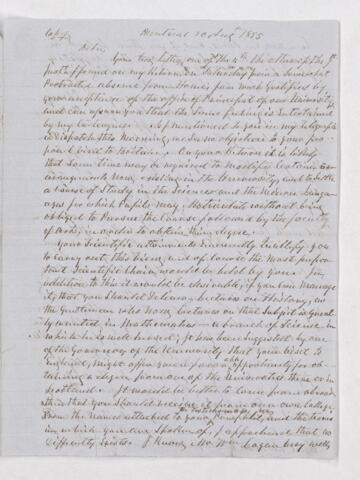 Copy Montreal 20 Augt 1855
My dear Sir
Your two letters, one of the 4th the other of the 9th
just offered on my return on Saturday from a somewhat
Protracted absence from Home; I am much gratified by
your acceptance of the office of Principal of our University,
and can assure you that the same feeling is Entertained
by my colleagues. As I mentioned to you in my telegraph
despatch this Morning, no Injury objection to your pro-
posed Visit to Britain.
that some time may be required to modify certain
arrangements Now existing in the University, and to settle
a course of Study in the Sciences and the Modern Langua-
ges for which Pupils may Matriculate without being
obliged to Pursue the Course followed by the faculty
of arts, in order to obtain their degree.
Your Scientific attainments eminently qualify you
to carry out this View, and of course the Most impor-
tant Scientific Chair would be held by you. In
addition to this it would be desirable, if you can manage
it, that you should deliver lectures on History, as
the Gentleman who Now lectures on that Subject is great-
ly wanted in Mathematics — a branch of Science in
which he is well versed; It has been suggested by one
of the Governors of the University that your Visit to
England, might afford you an opportunity for ob-
taining a degree from one of the Universities there or in
Scotland. It would be better to come from abroad
than that you should receive it from our own College.
From the Names attached to your testimonials, and the terms
in which you are Spoken of, I apprehend that no
difficulty exists. I know Mr Wm Logan very well;